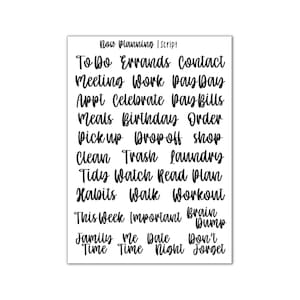 Now Planning | Script
To Do Errands Contact
Meeting Work Pay Day
Appt Celebrate Pay Bills
Meals Birthday Order
Pick up Drop off shop
Clean Trash Laundry
Tidy Watch Read Plan
Habits Walk Workout
This Week Important Brain Dump
Family Time Me Time Date Night Don't Forget